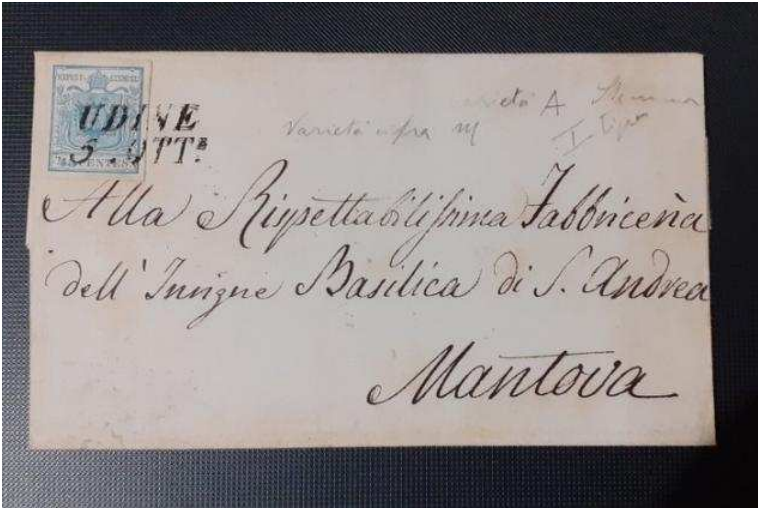 UDINE
5 OTTE
45 CENTES
Varietà cifra
A
I Tipo
Alla Rispettabilissima Fabbriceria
dell' Insigne Basilica di S. Andrea
Mantova